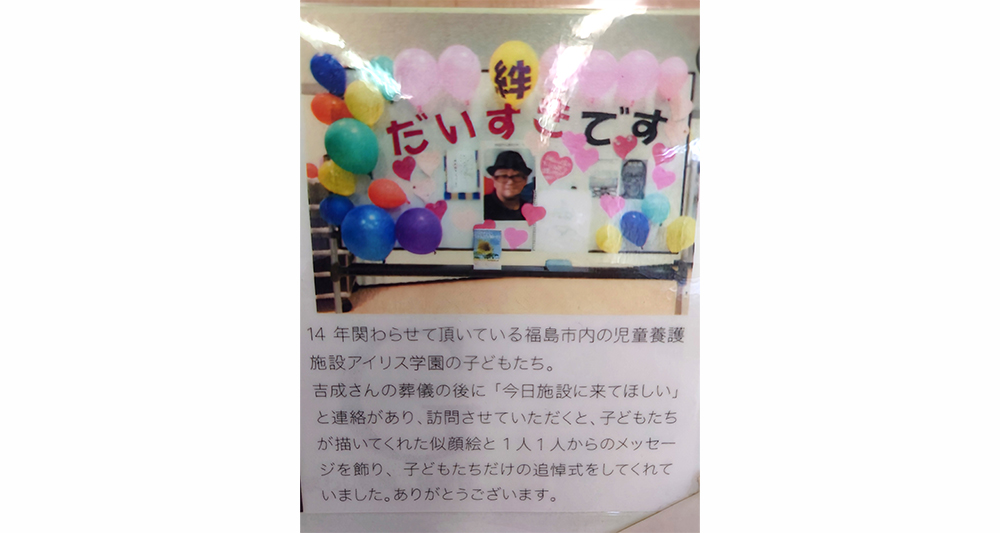 絆
だいすきです
14 年関わらせて頂いている福島市内の児童養護
施設アイリス学園の子どもたち。
吉成さんの葬儀の後に「今日施設に来てほしい」
と連絡があり、訪問させていただくと、子どもたち
が描いてくれた似顔絵と1人1人からのメッセー
ジを飾り、子どもたちだけの追悼式をしてくれて
いました。ありがとうございます。